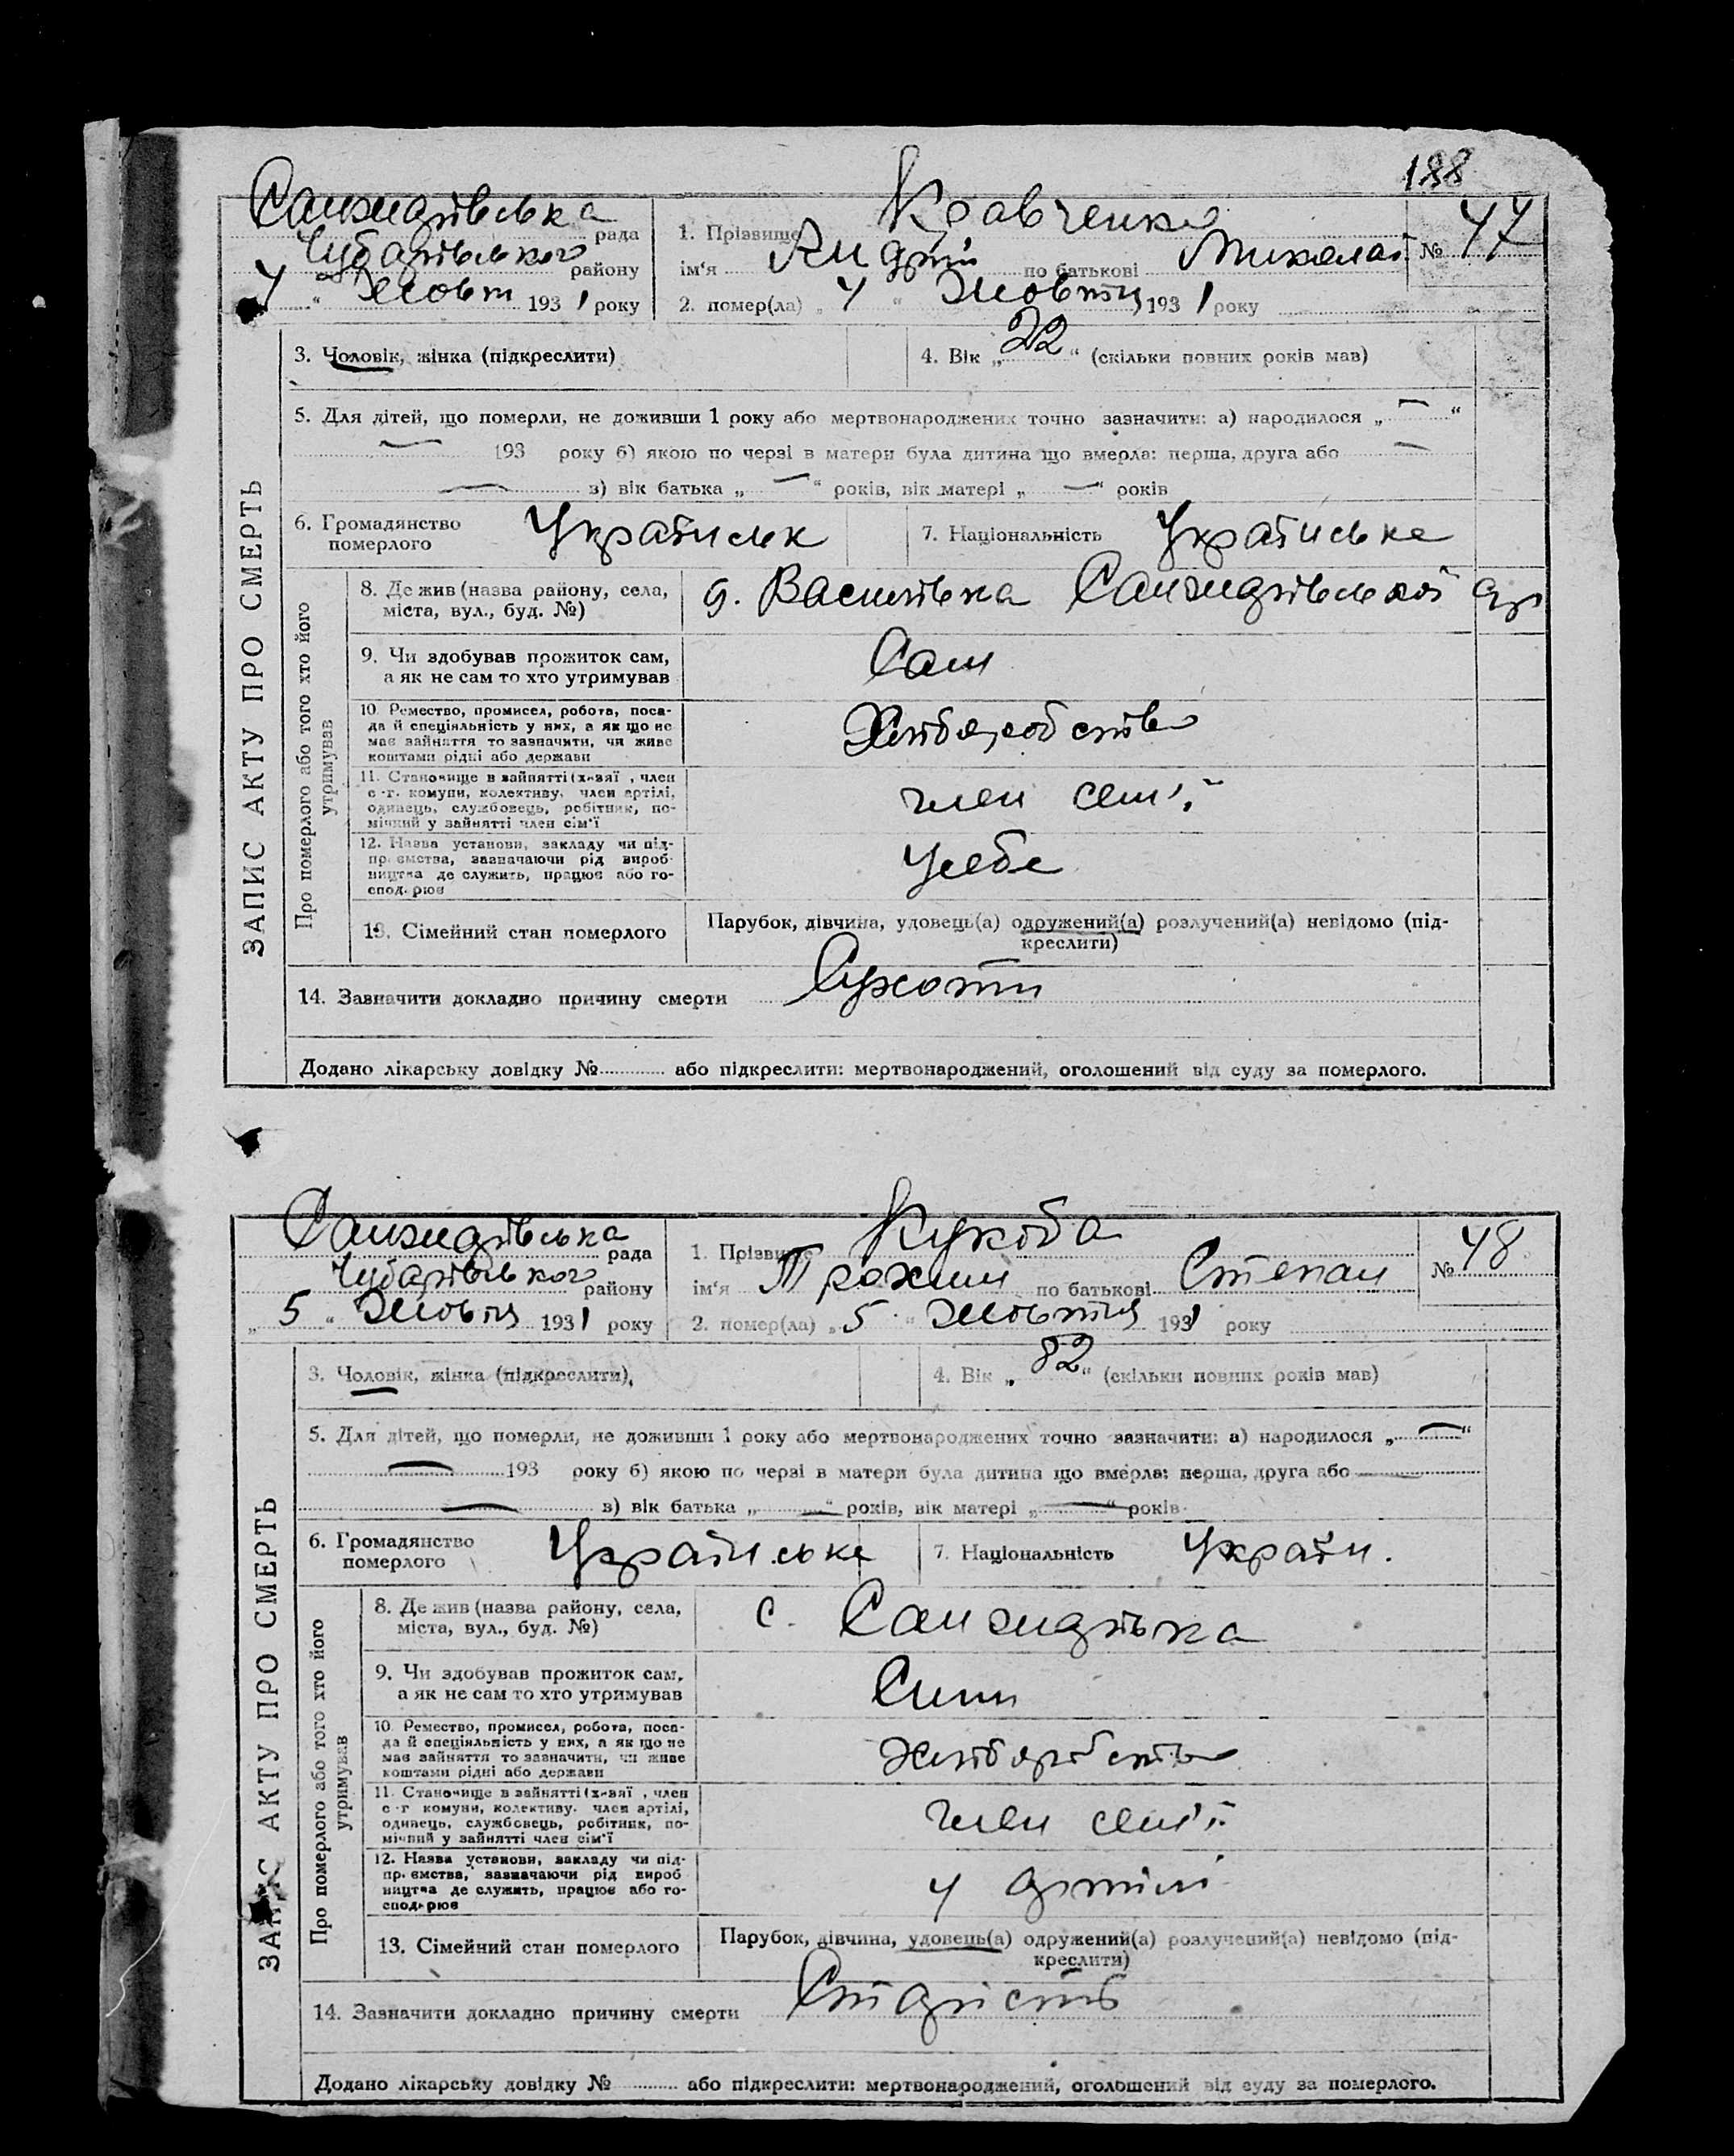 188
Санжарівська рада
Чубарівського району
4 " Жовт 1931 року
1. Прізвище Кравченко
ім'я Андрій по батькові Миколай
№ 47
2. помер(ла) „ 4 " Жовтня 1931 року
3. Чоловік, жінка (підкреслити)
4. Вік „ 22 " (скільки повних років мав)
5. Для дітей, що померли, не доживши 1 року або мертвонароджених точно зазначити: а) народилося „ — "
— 193 року б) якою по черзі в матери була дитина що вмерла: перша, друга або —
— в) вік батька „ — " років, вік матері „ — " років
6. Громадянство
померлого
Українськ
7. Національність Українське
ЗАПИС АКТУ ПРО СМЕРТЬ
Про померлого або того хто його
утримував
8. Де жив (назва району, села,
міста, вул., буд. №)
Василівка Санжарівської
9. Чи здобував прожиток сам,
а як не сам то хто утримував
Сам
10. Ремество, промисел, робота, поса-
да й спеціяльність у них, а як що не
має зайняття то зазначити, чи живе
коштами рідні або держави
Хліборобство
11. Становище в зайнятті (х-вяї , член
с -г. комуни, колективу, член артілі,
одинець, службовець, робітник, по-
мічний у зайнятті член сім'ї
член сем'ї
12. Назва установи, закладу чи під-
пр ємства, зазначаючи рід вироб-
ництва де служить, працює або го-
спод. рює
У себе
13. Сімейний стан померлого
Парубок, дівчина, удовець(а) одружений(а) розлучений(а) невідомо (під-
креслити)
14. Зазначити докладно причину смерти Сухоти
Додано лікарську довідку № або підкреслити: мертвонароджений, оголошений від суду за померлого.
Санжарівська рада
Чубарівського району
„ 5 " Жовтн 1931 року
1. Прізвище Кукоба
ім'я Трохим по батькові Степан
№ 48
2. помер(ла) „ 5 " Жовтня 1931 року
3. Чоловік, жінка (підкреслити),
4. Вік „ 82 " (скільки повних років мав)
5. Для дітей, що померли, не доживши 1 року або мертвонароджених точно зазначити: а) народилося „ — "
— 193 року б) якою по черзі в матери була дитина що вмерла: перша, друга або —
— в) вік батька „ — " років, вік матері „ — " років
6. Громадянство
померлого
Українське
7. Національність Україн.
ЗАПИС АКТУ ПРО СМЕРТЬ
Про померлого або того хто його
утримував
8. Де жив (назва району, села,
міста, вул., буд. №)
с. Санжарівка
9. Чи здобував прожиток сам,
а як не сам то хто утримував
10. Ремество, промисел, робота, поса-
да й спеціяльність у них, а як що не
має зайняття то зазначити, чи живе
коштами рідні або держави
Хліборобство
11. Становище в зайнятті (х-вяї , член
с -г комуни, колективу. член артілі,
одинець, службовець, робітник, по-
мічний у зайнятті член сім'ї
член сем'ї
12. Назва установи, закладу чи під-
пр. ємства, зазначаючи рід вироб
ництва де служить, працює або го-
спод. рює
у артілі
13. Сімейний стан померлого
Парубок, дівчина, удовець(а) одружений(а) розлучений(а) невідомо (під-
креслити)
14. Зазначити докладно причину смерти Старість
Додано лікарську довідку № або підкреслити: мертвонароджений, оголошений від суду за померлого.